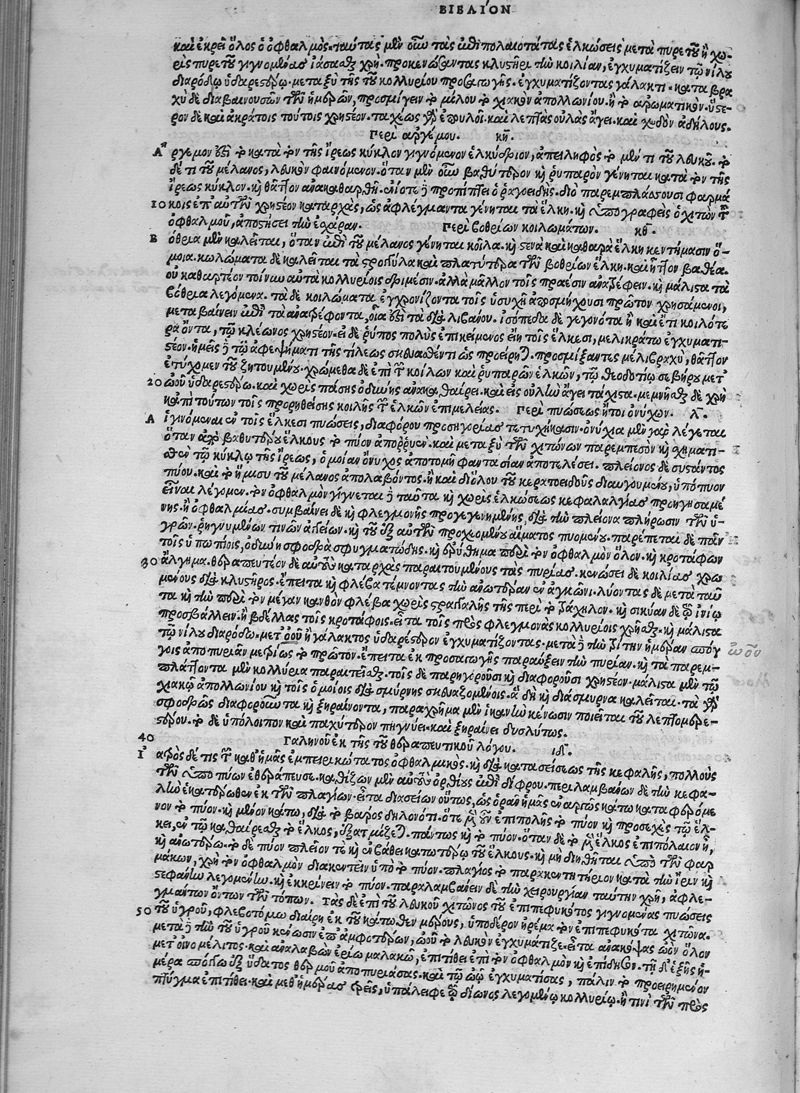 ΒΙΒΛΙΟΝ
καὶ ἐκρεῖ ὅλος ὁ ὀφθαλμός. τὰς μὲν οὖν ἐπιπολαιοτάτας ἑλκώσεις μετὰ πυρετοῦ ἢ χω-
ρὶς πυρετοῦ γιγνομένας ἰᾶσθαι χρή. προκενώσαντας κλυστῆρι τὴν κοιλίαν, ἐγχυματίζειν τῷ νίλῳ
διαρόδῳ ὑδαρεστέρῳ. μεταξὺ τῆς τοῦ κολλυρίου προσαγωγῆς. ἐγχυματίζοντας γάλακτι. κατὰ βρα
χὺ δὲ διαβαινουσῶν τῶν ἡμερῶν, προσμίγειν τὸ χιακὸν ἀπολλωνίου. ἢ τὸ ἀρωματικόν. ὕστε-
ρον δὲ καὶ ἀκράτοις τούτοις χρηστέον. ταχέως γὰρ ἐπουλοῖ. καὶ λεπτὰς οὐλὰς ἄγει. καὶ σχεδὸν ἀδήλους.
Περὶ ἀργέμου. κη.
Αργεμον ἐστὶ τὸ κατὰ τὸν τῆς ἴρεως κύκλον γιγνόμενον ἑλκύδριον, ἀπειληφὸς μέν τι τοῦ λευκοῦ. τὸ
δέ τι τοῦ μέλανος, λευκὸν φαινόμενον. ὅταν μὲν οὖν βαθύτερον καὶ ῥυπαρὸν γένηται κατὰ τὸν τῆς
ἴρεως κύκλον. καὶ θᾶττον ἀνακαθαρθῇ. ἐνίοτε δὲ προπίπτει ὁ ῥαγοειδής. διὸ παρεμπλάσσουσι φαρμά
10 κοις ἐπ' αὐτῶν χρηστέον καταρχάς, ὡς ἀφλέγμαντα γένηται τὰ ἕλκη. καὶ ὑπογραφεὶς ὁ χιτὼν τοῦ
ὀφθαλμοῦ, ἀποστήσει τὴν ἐσχάραν. Περὶ βοθρίων κοιλωμάτων. κθ.
Βόθρια μὲν καλεῖται, ὅταν ἐπὶ τοῦ μέλανος γένηται κοῖλα. καὶ στενὰ καὶ καθαρὰ ἕλκη κεντήμασιν ὅ-
μοια. κοιλώματα δὲ καλεῖται τὰ στρογγύλα καὶ πλατύτερα τῶν βοθρίων ἕλκη. καὶ ἧττον βαθέα.
οὐ καθαρτέον τοίνυν αὐτὰ κολλυρίοις δριμέσιν. ἀλλὰ μᾶλλον τοῖς πραέσιν ἀναστρέφειν. καὶ μάλιστα τὰ
βόθρια λεγόμενα. τὰ δὲ κοιλώματα ἐγχρονίζοντα τοῖς ἡσυχῇ ἀποσμήχουσι πρῶτον χρησάμενοι,
μεταβαίνειν ἐπὶ τὰ ἀνατρέφοντα, οἷά ἐστι τὰ διὰ λιβάνου. ἰσόπεδα δὲ γεγονότα ἢ καὶ ἔτι κοιλότε
ρα ὄντα, τῷ κλέωνος χρηστέον. εἰ δὲ ῥύπος πολὺς ἐπικείμενος εἴη τοῖς ἕλκεσι, μελικράτῳ ἐγχυματι-
στέον. ἡμεῖς δὲ τῷ ἀφεψήματι τῆς τήλεως σκευασθέντι ὡς προείρηται. προσμίξαντες μέλι βραχύ, θᾶττον
ἐτύχομεν τοῦ ζητουμένου. χρώμεθα δὲ ἐπὶ τῶν κοίλων καὶ ῥυπαρῶν ἑλκῶν, τῷ θεοδοτίῳ σεβήρου μετ'
20 ὠοῦ ὑδαρεστέρῳ. καὶ χωρὶς πάσης ὀδύνης ἀνακαθαίρει. καὶ εἰς οὐλὴν ἄγει τάχιστα. μεμνῆσθαι δὲ χρὴ
καὶ ἐπὶ τούτων τῆς προρρηθείσης κοινῆς τῶν ἑλκῶν ἐπιμελείας. Περὶ πυώσεως ἤτοι ὀνύχων. λ.
Αἱ γινόμεναι ἐν τοῖς ἕλκεσι πυώσεις, διαφόρου προσηγορίας τετυχήκασιν. ὀνύχια μὲν γὰρ λέγεται
ὅταν ἀπὸ βαθυτέρου ἕλκους τὸ πύον ἀπορρυὲν. καὶ μεταξὺ τῶν χιτώνων παρεμπεσὸν καὶ χηματι-
σθὲν τῷ κύκλῳ τῆς ἴρεως, ὁμοίαν ὄνυχος ἀποτομῇ φαντασίαν ἀποτελέσει. πλείονος δὲ συστάντος
πύου. καὶ τὸ ἥμισυ τοῦ μέλανος ἀπολαβόντος. ἢ καὶ δι' ὅλου τοῦ κερατοειδοῦς διαπυουμένου, ὑπόπυον
εἶναι λέγομεν τὸν ὀφθαλμόν. γίγνεται δὲ ταῦτα καὶ χωρὶς ἑλκώσεως κεφαλαλγίας προηγησαμέ
νης. ἢ ὀφθαλμίας. συμβαίνει δὲ καὶ φλεγμονῆς προγεγενημένης, διὰ τὴν πλείονα πλήρωσιν τῶν ὑ-
γρῶν. ῥηγνυμένων τινῶν ἀγγείων. καὶ τοῦ ἐξ αὐτῶν προχεομένου αἵματος πυουμένου. παρέπεται δὲ πᾶσι
τοῖς ὑποπύοις, ὀδύνη σφοδρὰ σφυγματώδης. καὶ ἐρύθημα περὶ τὸν ὀφθαλμὸν ὅλον. καὶ κροτάφων
30 ἄλγημα. θεραπευτέον δὲ αὐτοὺς καταρχὰς παραιτουμένους τὰς πυρίας. κενώσει δὲ κοιλίας χρω
μένους διὰ κλυστῆρος. ἔπειτα καὶ φλέβα τέμνοντας τὴν ἀνωτέραν ἐν ἀγκῶνι. λύοντας δὲ μετὰ ταῦ
τα καὶ τὴν περὶ τὸν μέγαν κανθὸν φλέβα χωρὶς στραγγάλης τῆς περὶ τὸν τράχηλον. καὶ σικύαν δὲ τῷ ἰνίῳ
προσβάλλειν. ἢ βδέλλας τοῖς κροτάφοις. εἶτα τοῖς πρὸς φλεγμονὰς κολλυρίοις χρῆσθαι. καὶ μάλιστα
τῷ νίλῳ διαρόδῳ. μετ' ὀροῦ ἢ γάλακτος ὑδαρέστερον ἐγχυματίζοντας. μετὰ δὲ τὴν τρίτην ἡμέραν σπόγ
ὠοῦ
γοις ἀποπυριᾶν μετρίως τὸ πρῶτον. ἔπειτα ἐκ προσαγωγῆς παραύξειν τὴν πυρίαν. καὶ τὰ παρεμ-
πλάττοντα μὲν κολλύρια παραιτεῖσθαι. τοῖς δὲ παρηγοροῦσι καὶ διαφοροῦσι χρηστέον. μάλιστα μὲν τῷ
χιακῷ ἀπολλωνίου καὶ τοῖς ὁμοίοις διὰ σμύρνης σκευαζομένοις. ἃ δὴ καὶ διάσμυρνα καλεῖται. τὰ γὰρ
σφοδρῶς διαφοροῦντα καὶ ξηραίνοντα, παραχρῆμα μὲν ἱκανὴν κένωσιν ποιεῖται τοῦ λεπτομερε-
στέρου. τὸ δὲ ὑπόλοιπον καὶ παχύτερον πηγνύει. καὶ ξηραίνει δυσλύτως.
40 Γαληνοῦ ἐκ τῆς τοῦ θεραπευτικοῦ λόγου. ιδ.
Ιατρὸς δέ τις τῶν καθ' ἡμᾶς ἐμπειρικώτατος ὀφθαλμικός. καὶ διὰ κατασείσεως τῆς κεφαλῆς, πολλοὺς
τῶν ὑποπύων ἐθεράπευσε. καθίζων μὲν αὐτοὺς ὀρθοὺς ἐπὶ δίφρου. περιλαμβάνων δὲ τὴν κεφα-
λὴν ἑκατέρωθεν ἐκ τῶν πλαγίων. εἶτα διασείων οὕτως, ὡς ὁρᾶν ἡμᾶς ἐναργῶς κάτω καταφερόμε
νον τὸ πύον. καὶ μένον κάτω, διὰ τὸ βάρος δηλονότι. ὅτε μὲν οὖν ἐπιπολῆς τὸ πύον καὶ προσεχὲς τῷ ἕλ-
κει, ἐν τῷ καθαίρεσθαι τὸ ἕλκος, ἐξατμίζεται πάντως καὶ τὸ πύον. ὅταν δὲ τὸ μὲν ἕλκος ἐπιπόλαιον ᾖ,
καὶ ἀνωτέρω. τὸ δὲ πύον πλεῖόν τε καὶ ἐν βάθει κατωτέρω τοῦ ἕλκους. καὶ μὴ δύνηται ὑπὸ τῶν φαρ
μάκων, χρὴ τὸν ὀφθαλμὸν διακεντεῖν ὑπὸ τὸ πύον. πλαγίως τὸ παρακεντητήριον κατὰ τὴν ἶριν καὶ
στεφάνην λεγομένην. καὶ ἐκκρίνειν τὸ πύον. παραλαμβάνειν δὲ τὴν χειρουργίαν ταύτην χρή, ἀφλε-
γμάντων ὄντων τῶν τόπων. Τὰς δὲ ἐπὶ τοῦ λευκοῦ χιτῶνος τοῦ ἐπιπεφυκότος γιγνομένας πυώσεις
50 τοῦ ὑγροῦ, φλεβοτόμῳ διαίρει ἐκ τοῦ κάτωθεν μέρους, ὑποδέρων ἠρέμα τὸν ἐπιπεφυκότα χιτῶνα.
μετὰ δὲ τὴν τοῦ ὑγροῦ κένωσιν ἐπ' ἀμφοτέρων, ὠοῦ τὸ λευκὸν ἐγχυματίζε. εἶτα ἀνακόψας ὠὸν ὅλον
μετ' οἰνομέλιτος. καὶ ἀναλαβὼν ἐρίῳ μαλακῷ, ἐπιτίθει ἐπὶ τὸν ὀφθαλμὸν καὶ ἐπίδησον. τῇ δ' ἑξῆς ἡ-
μέρᾳ σπόγγῳ ἐξ ὕδατος θερμοῦ ἀποπυριάσας. καὶ τῷ ὠῷ ἐγχυματίσας, πάλιν τὸ προειρημένον
πτύγμα ἐπιτίθει. καὶ μεθ' ἡμέρας τρεῖς, ὑπάλειφε τῷ δίωνος λεγομένῳ κολλυρίῳ. ἤ τινι τῶν πρὸς